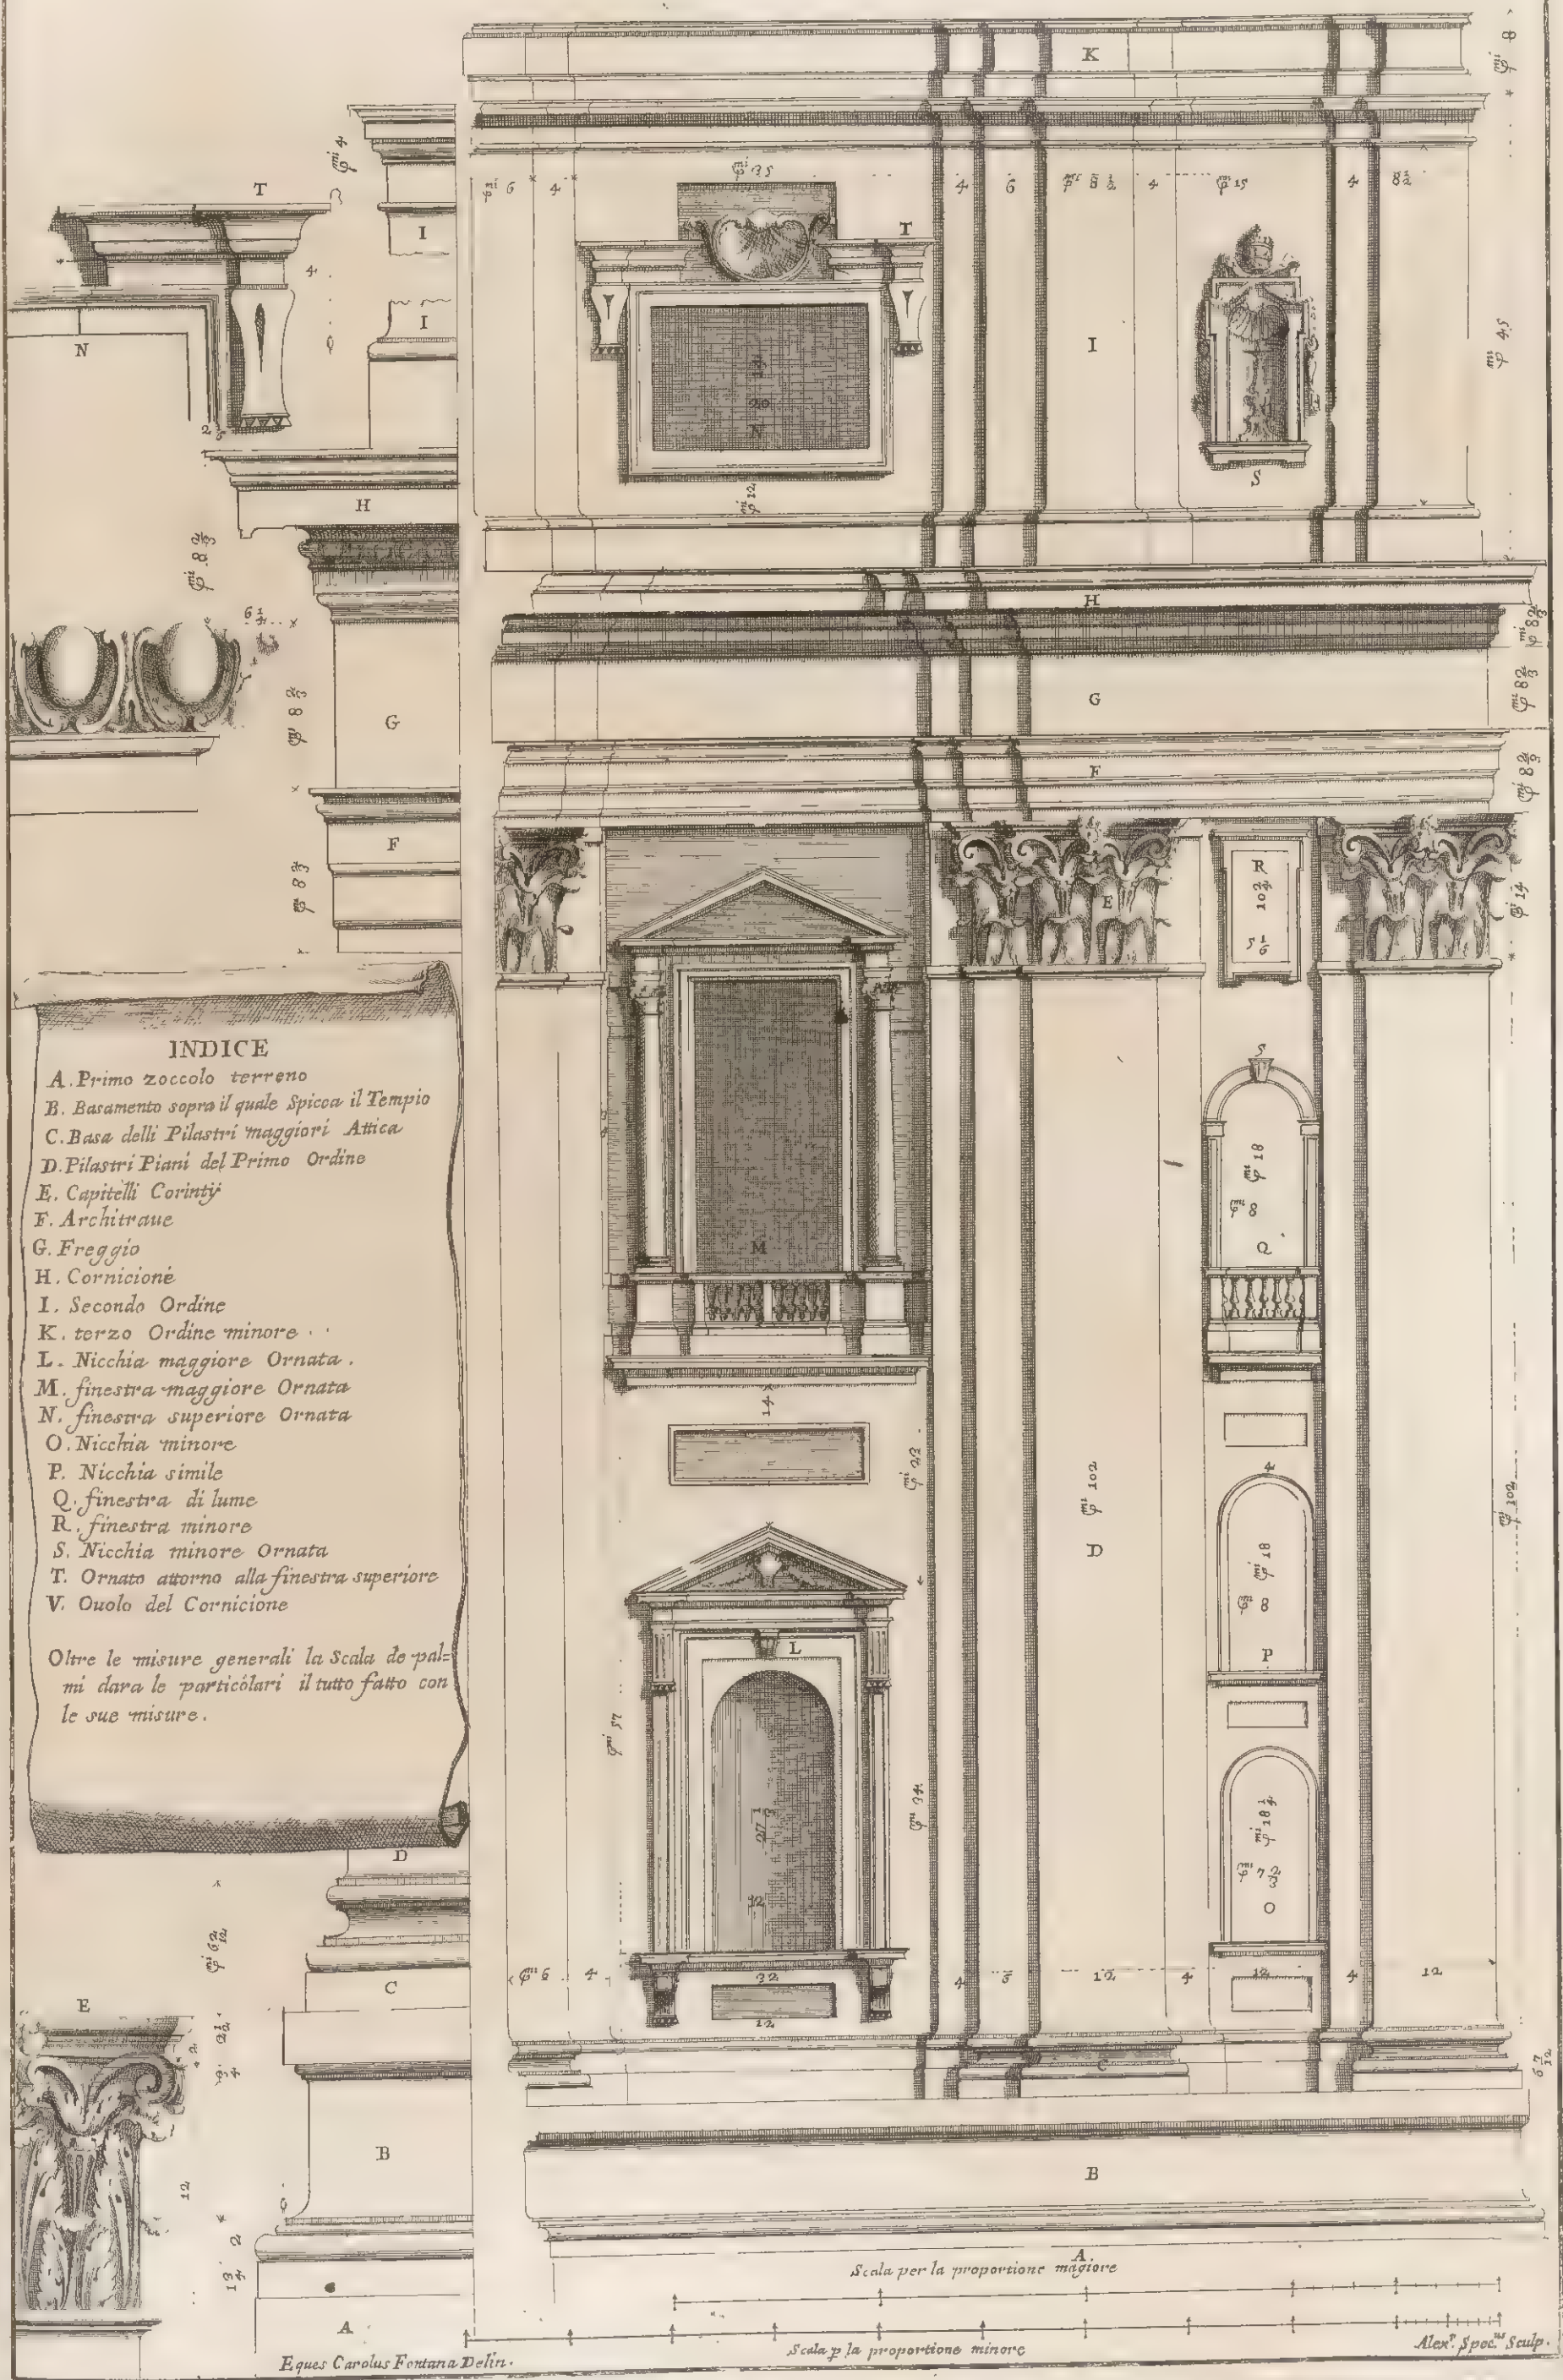 K
T
I
I
N
H
G
F
8
4
4
2
6 4 4 6 8 1/2 4 15 4 8 1/2
35
T
20
N
12
I
S
45
H
G
F
8 2/3
8 2/3
8 2/3
8 2/3
6 1/4
8 2/3
8 2/3
E
R
10 3/4
5 1/6
14
INDICE
A. Primo zoccolo terreno
B. Basamento sopra il quale Spicca il Tempio
C. Basa delli Pilastri maggiori Attica
D. Pilastri Piani del Primo Ordine
E. Capitelli Corintÿ
F. Architraue
G. Freggio
H. Cornicione
I. Secondo Ordine
K. terzo Ordine minore
L. Nicchia maggiore Ornata.
M. finestra maggiore Ornata
N. finestra superiore Ornata
O. Nicchia minore
P. Nicchia simile
Q. finestra di lume
R. finestra minore
S. Nicchia minore Ornata
T. Ornato attorno alla finestra superiore
V. Ouolo del Cornicione
Oltre le misure generali la Scala de pal=
mi dara le particolari il tutto fatto con
le sue misure.
S
18
8
Q
M
14
23
102
D
102
4
18
8
P
L
57
34
27 1/3
12
18 1/4
7 2/3
O
6 4 32 4 6 12 4 12 4 12
12
D
C
C
E
B
B
12
2
A
A
Scala per la proportione magiore
Scala p la proportione minore
Eques Carolus Fontana Delin.
Alex.r Spec.us Sculp.